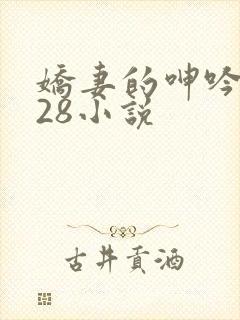 嬌妻的呻吟
28小說
古井貢酒